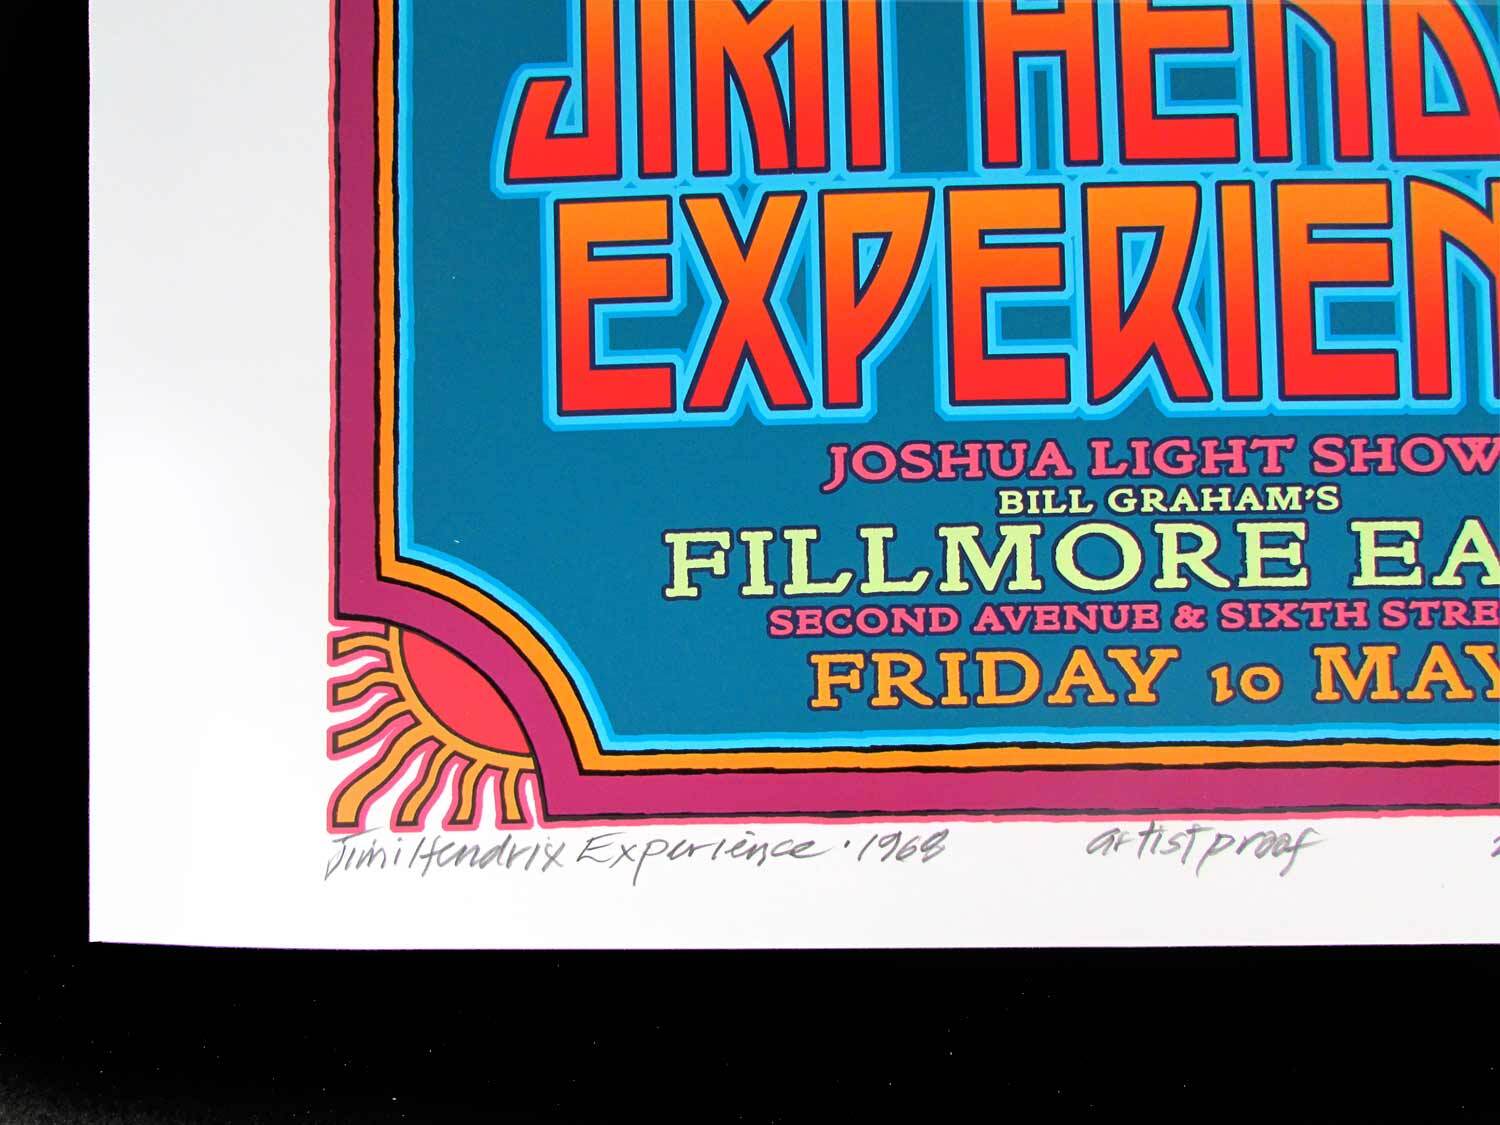 JIMI HEND
EXPERIEN
JOSHUA LIGHT SHOW
BILL GRAHAM'S
FILLMORE EA
SECOND AVENUE & SIXTH STRE
FRIDAY 10 MAY
Jimi Hendrix Experience · 1968 artist proof